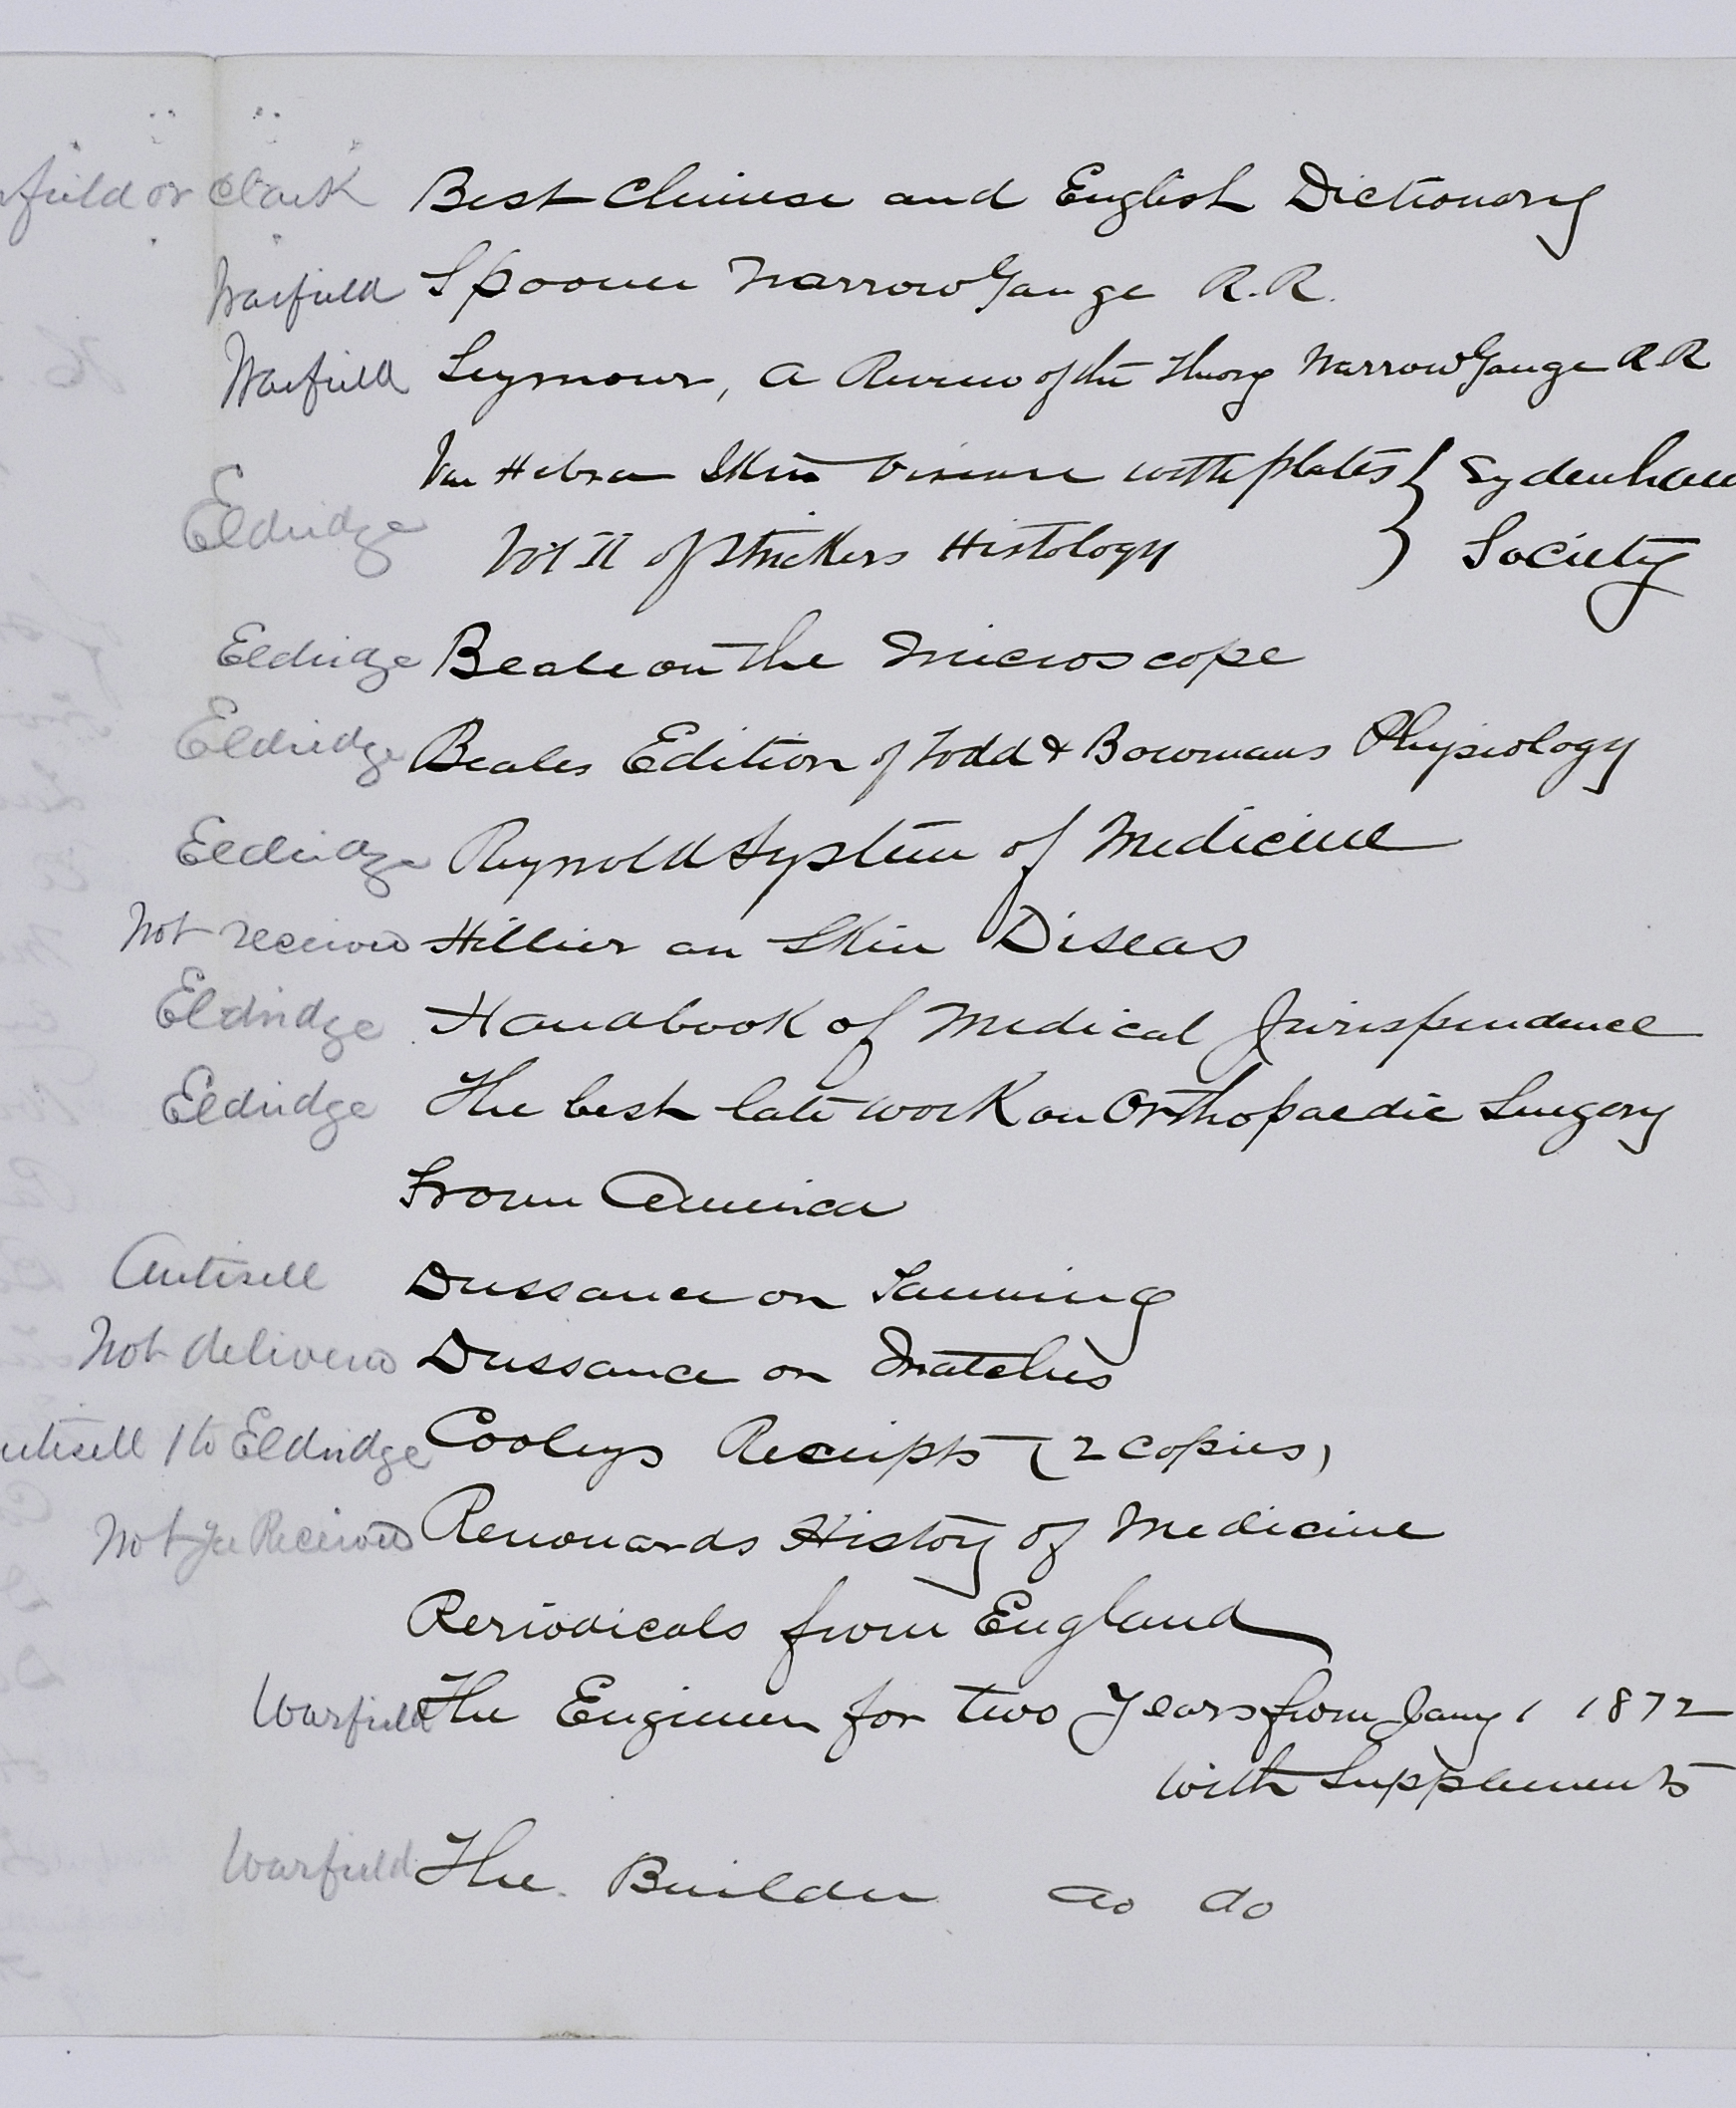 rfield or Clark Best Chinese and English Dictionary
Warfield Spooner Narrow Gauge R.R.
Warfield Seymour, A Review of the Theory Narrow Gauge R R
Van Hebra Skin Disease with plates } Sydenham
Eldridge Vol II of Strickers Histology } Society
Eldridge Beale on the Microscope
Eldridge Beales Edition of Todd & Bowmans Physiology
Eldridge Reynold System of Medicine
Not received Hillier on Skin Diseas
Eldridge Handbook of Medical Jurispendence
Eldridge The best late work on Orthopaedic Surgery
From America
Antisell Dussance on Tanning
Not delivered Dussance on Matches
ntisell 1 to Eldridge Cooleys Receipts (2 copies)
Not Received Renouards History of Medicine
Periodicals from England
Warfield The Engineer for two Years from Jany 1 1872
with Supplements
Warfield The Builder do do